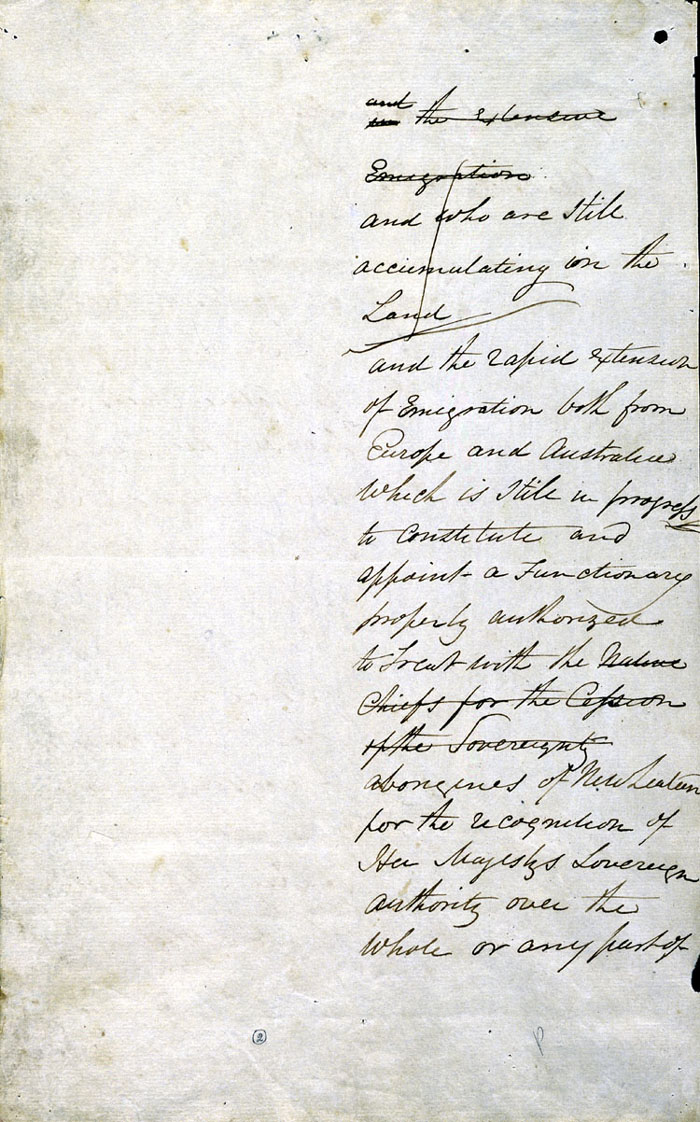 and
the extensive
Emigration
and who are still
accumulating in the
Land
and the rapid extension
of Emigration both from
Europe and Australia
which is still in progress
to constitute and
appoint a Functionary
properly authorized
to treat with the Native
Chiefs for the Cession
of the Sovereignty
aborigines of New Zealand
for the recognition of
Her Majestys Sovereign
authority over the
whole or any part of
2